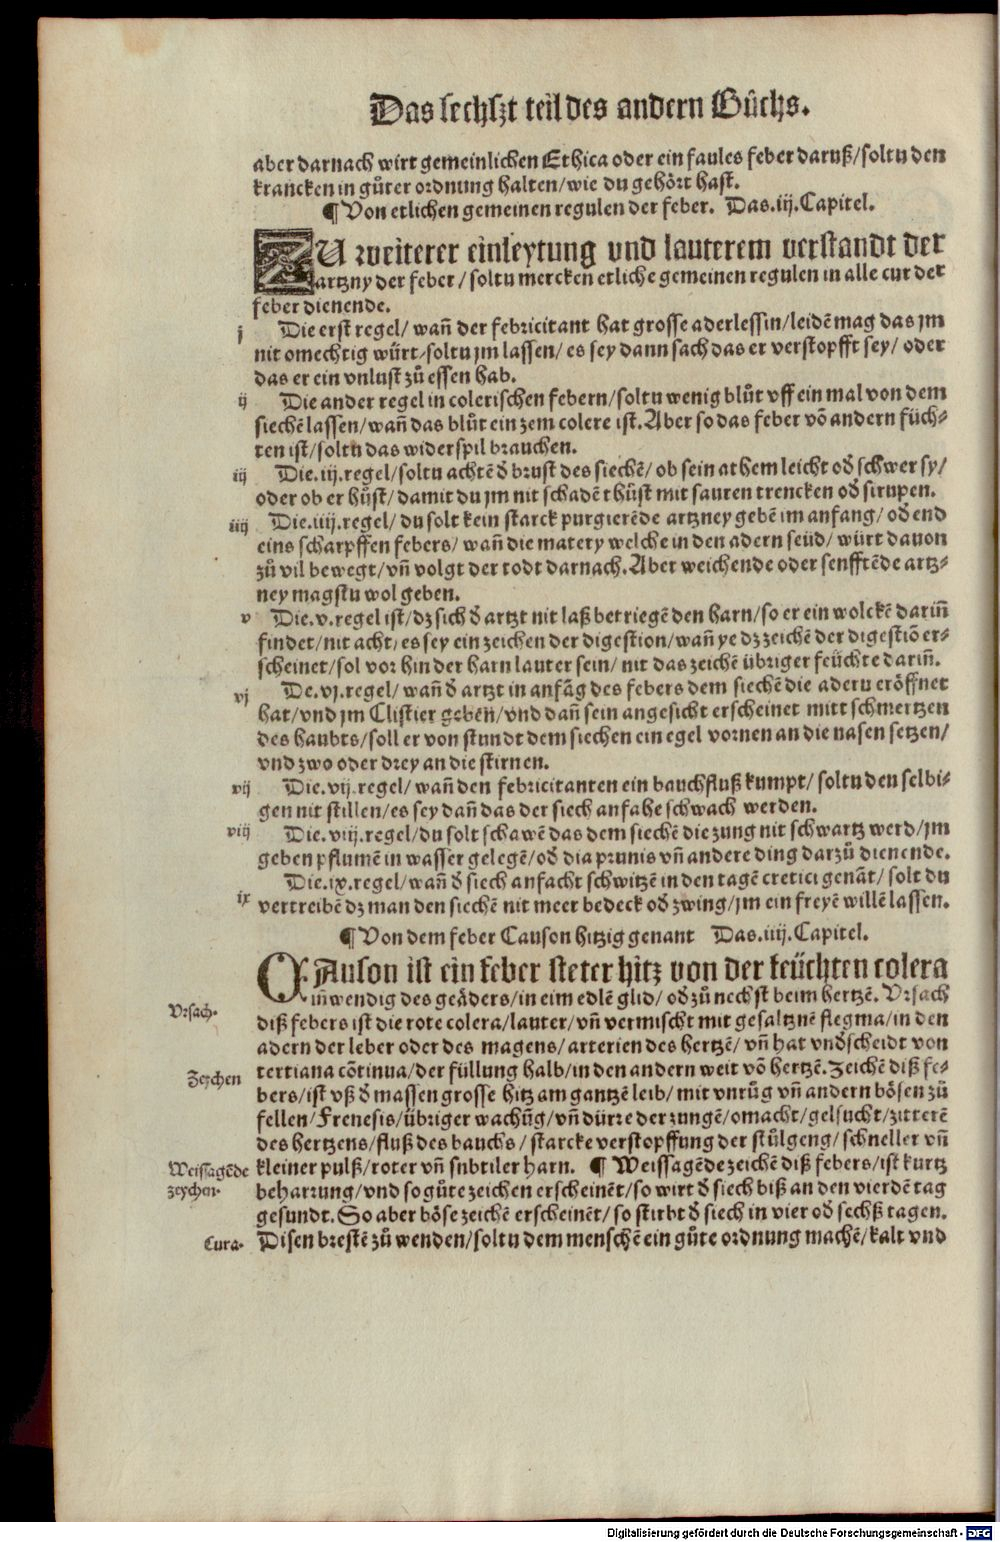 Das sechszt teil des andern Bůchs.
aber darnach wirt gemeinlichen Ethica oder ein faules feber daruß/soltu den
krancken in gůter ordnung halten/wie du gehört hast.
¶ Von etlichen gemeinen regulen der feber. Das.iij.Capitel.
ZU weiterer einleytung vnd lauterem verstandt der
artzny der feber/soltu mercken etliche gemeinen regulen in alle cur der
feber dienende.
j Die erst regel/wañ der febricitant hat grosse aderlessin/leidē mag das jm
nit omechtig würt/soltu jm lassen/es sey dann sach das er verstopfft sey/oder
das er ein vnlust zů essen hab.
ij Die ander regel in colerischen febern/soltu wenig blůt vff ein mal von dem
siechē lassen/wañ das blůt ein zem colere ist. Aber so das feber vō andern füch-
ten ist/soltu das widerspil brauchen.
iij Die.iij.regel/soltu achtē d̄ brust des siechē/ob sein athem leicht od̄ schwer sy/
oder ob er hůst/damit du jm nit schadē thůst mit sauren trencken od̄ sirupen.
iiij Die.iiij.regel/du solt kein starck purgierēde artzney gebē im anfang/od̄ end
eins scharpffen febers/wañ die matery welche in den adern seüd/würt dauon
zů vil bewegt/vñ volgt der todt darnach. Aber weichende oder senfftēde artz-
ney magstu wol geben.
v Die.v.regel ist/dz sich d̄ artzt nit laß betriegē den harn/so er ein wolckē dariñ
findet/nit acht/es sey ein zeichen der digestion/wañ ye dz zeichē der digestiō er-
scheinet/sol vor hin der harn lauter sein/nit das zeichē übriger feüchte dariñ.
vj De.vj.regel/wañ d̄ artzt in anfāg des febers dem siechē die adern eröffnet
hat/vnd jm Clistier geben/vnd dañ sein angesicht erscheinet mitt schmertzen
des haubts/soll er von stundt dem siechen ein egel vornen an die nasen setzen/
vnd zwo oder drey an die stirnen.
vij Die.vij.regel/wañ den febricitanten ein bauchfluß kumpt/soltu den selbi-
gen nit stillen/es sey dañ das der siech anfahe schwach werden.
viij Die.viij.regel/du solt schawē das dem siechē die zung nit schwartz werd/jm
geben pflumē in wasser gelegē/od̄ dia prunis vñ andere ding darzů dienende.
Die.ix.regel/wañ d̄ siech anfacht schwitzē in den tagē cretici genāt/solt du
ix vertreibē dz man den siechē nit meer bedeck od̄ zwing/jm ein freyē willē lassen.
¶ Von dem feber Causon hitzig genant Das.iiij.Capitel.
CAuson ist ein feber steter hitz von der feüchten colera
iñwendig des geäders/in eim edlē glid/od̄ zů nechst beim hertzē. Vrsach
Vrsach. diß febers ist die rote colera/lauter/vñ vermischt mit gesaltznē flegma/in den
adern der leber oder des magens/arterien des hertzē/vñ hat vnd̄scheidt von
Zeychen tertiana cōtinua/der füllung halb/in den andern weit vō hertzē. Zeichē diß fe-
bers/ist vß d̄ massen grosse hitz am gantzē leib/mit vnrůg vñ andern bösen zů
fellen/Frenesis/übriger wachūg/vñ dürre der zungē/omacht/gelsucht/zitterē
des hertzens/fluß des bauchs/starcke verstopffung der stůlgeng/schneller vñ
Weissagēde kleiner pulß/roter vñ subtiler harn. ¶ Weissagēde zeichē diß febers/ist kurtz
zeychen. beharrung/vnd so gůte zeichen erscheinēt/so wirt d̄ siech biß an den vierdē tag
gesundt. So aber böse zeichē erscheinēt/so stirbt d̄ siech in vier od̄ sechß tagen.
Cura. Disen brestē zů wenden/soltu dem menschē ein gůte ordnung machē/kalt vnd
Digitalisierung gefördert durch die Deutsche Forschungsgemeinschaft - DFG